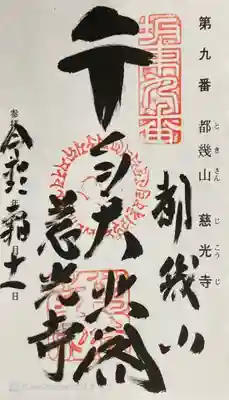 第九番 都幾山 慈光寺
とき さん じ こう じ
坂東九番
都幾山
千手大悲閣
慈光寺
令和
十一日